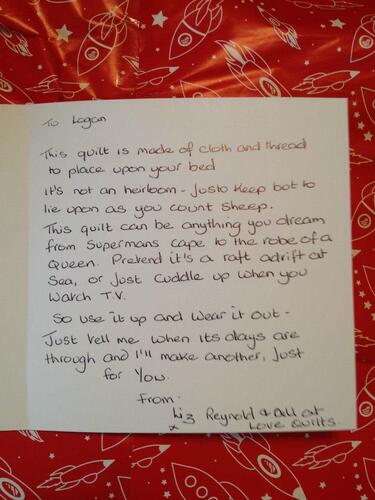 To Logan
This quilt is made of cloth and thread
to place upon your bed
It's not an heirloom - Just a keep bot to
lie upon as you count sheep.
This quilt can be anything you dream
from Supermans cape to the robe of a
Queen. Pretend it's a raft adrift at
Sea, or Just cuddle up when you
Watch T.V.
So use it up and wear it out -
Just tell me when its days are
through and I'll make another, Just
for You.
From.
Liz Reynold & All at
x Love Quilts.